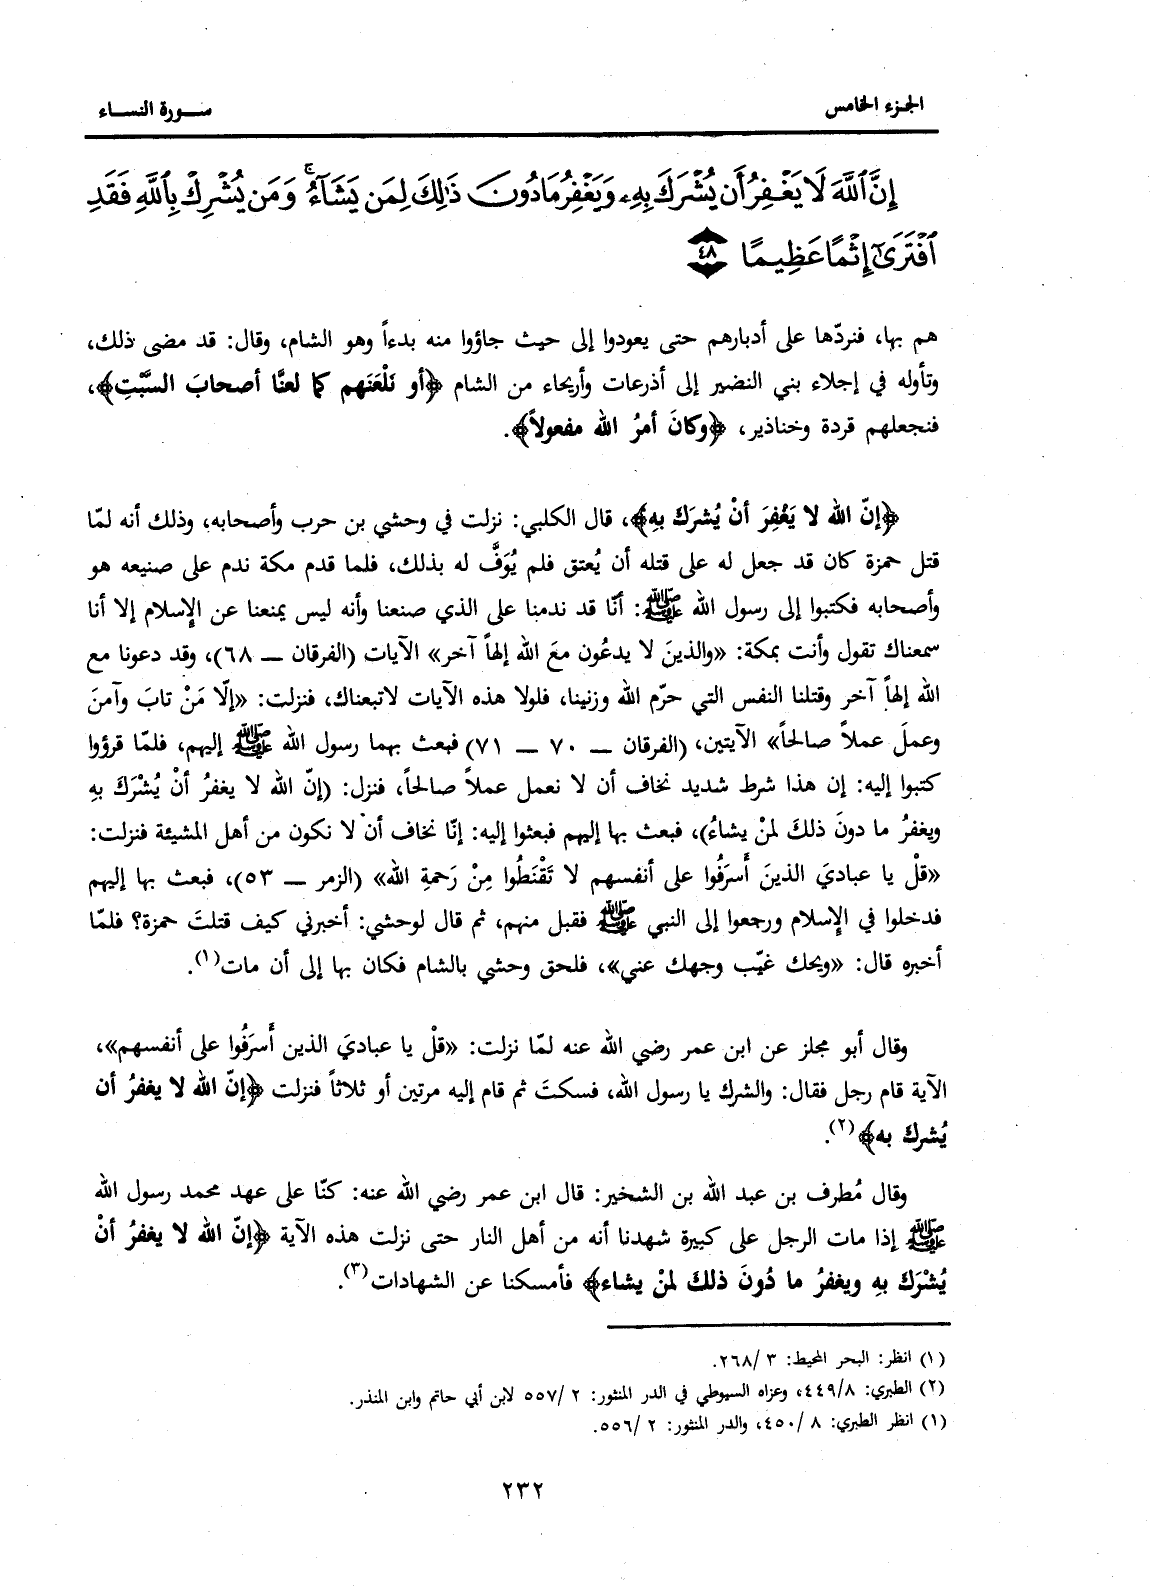 الجزء الخامس
سورة النساء
إِنَّ ٱللَّهَ لَا يَغْفِرُ أَن يُشْرَكَ بِهِۦ وَيَغْفِرُ مَا دُونَ ذَٰلِكَ لِمَن يَشَآءُ ۚ وَمَن يُشْرِكْ بِٱللَّهِ فَقَدِ
ٱفْتَرَىٰٓ إِثْمًا عَظِيمًا ٤٨
هم بها، فنردّها على أدبارهم حتى يعودوا إلى حيث جاؤوا منه بدءاً وهو الشام، وقال: قد مضى ذلك،
وتأوله في إجلاء بني النضير إلى أذرعات وأريحاء من الشام ﴿أو نَلْعَنَهم كما لعنَّا أصحابَ السَّبْتِ﴾،
فنجعلهم قردة وخنازير، ﴿وكانَ أمرُ الله مفعولاً﴾.
﴿إنّ الله لا يَغْفِرَ أنْ يُشرَكَ بهِ﴾، قال الكلبي: نزلت في وحشي بن حرب وأصحابه، وذلك أنه لمّا
قتل حمزة كان قد جعل له على قتله أن يُعتق فلم يُوَفَّ له بذلك، فلما قدم مكة ندم على صنيعه هو
وأصحابه فكتبوا إلى رسول الله ﷺ: أنّا قد ندمنا على الذي صنعنا وأنه ليس يمنعنا عن الإسلام إلا أنا
سمعناك تقول وأنت بمكة: «والذينَ لا يدعُون معَ الله إلهاً آخر» الآيات (الفرقان ــ ٦٨)، وقد دعونا مع
الله إلهاً آخر وقتلنا النفس التي حرّم الله وزنينا، فلولا هذه الآيات لاتبعناك، فنزلت: «إلّا مَنْ تابَ وآمنَ
وعملَ عملاً صالحاً» الآيتين، (الفرقان ــ ٧٠ ــ ٧١) فبعث بهما رسول الله ﷺ إليهم، فلمّا قرؤوا
كتبوا إليه: إن هذا شرط شديد نخاف أن لا نعمل عملاً صالحاً، فنزل: (إنّ الله لا يغفرُ أنْ يُشْرَكَ بهِ
ويغفرُ ما دونَ ذلكَ لمنْ يشاءُ)، فبعث بها إليهم فبعثوا إليه: إنّا نخاف أن لا نكون من أهل المشيئة فنزلت:
«قلْ يا عباديَ الذينَ أَسرَفُوا على أنفسهم لا تَقْنَطُوا مِنْ رَحمةِ الله» (الزمر ــ ٥٣)، فبعث بها إليهم
فدخلوا في الإسلام ورجعوا إلى النبي ﷺ فقبل منهم، ثم قال لوحشي: أخبرني كيف قتلتَ حمزة؟ فلمّا
أخبره قال: «ويحك غيّب وجهك عني»، فلحق وحشي بالشام فكان بها إلى أن مات(١).
وقال أبو مجلز عن ابن عمر رضي الله عنه لمّا نزلت: «قلْ يا عباديَ الذين أَسرَفُوا على أنفسهم»،
الآية قام رجل فقال: والشرك يا رسول الله، فسكتَ ثم قام إليه مرتين أو ثلاثاً فنزلت ﴿إنّ الله لا يغفرُ أن
يُشرك به﴾(٢).
وقال مُطرف بن عبد الله بن الشخير: قال ابن عمر رضي الله عنه: كنّا على عهد محمد رسول الله
ﷺ إذا مات الرجل على كبيرة شهدنا أنه من أهل النار حتى نزلت هذه الآية ﴿إنّ الله لا يغفرُ أنْ
يُشْرَكَ بهِ ويغفرُ ما دُونَ ذلكَ لمنْ يشاء﴾ فأمسكنا عن الشهادات(٣).
(١) انظر: البحر المحيط: ٣ /٢٦٨.
(٢) الطبري: ٤٤٩/٨، وعزاه السيوطي في الدر المنثور: ٢ /٥٥٧ لابن أبي حاتم وابن المنذر.
(١) انظر الطبري: ٨ /٤٥٠، والدر المنثور: ٢ /٥٥٦.
٢٣٢